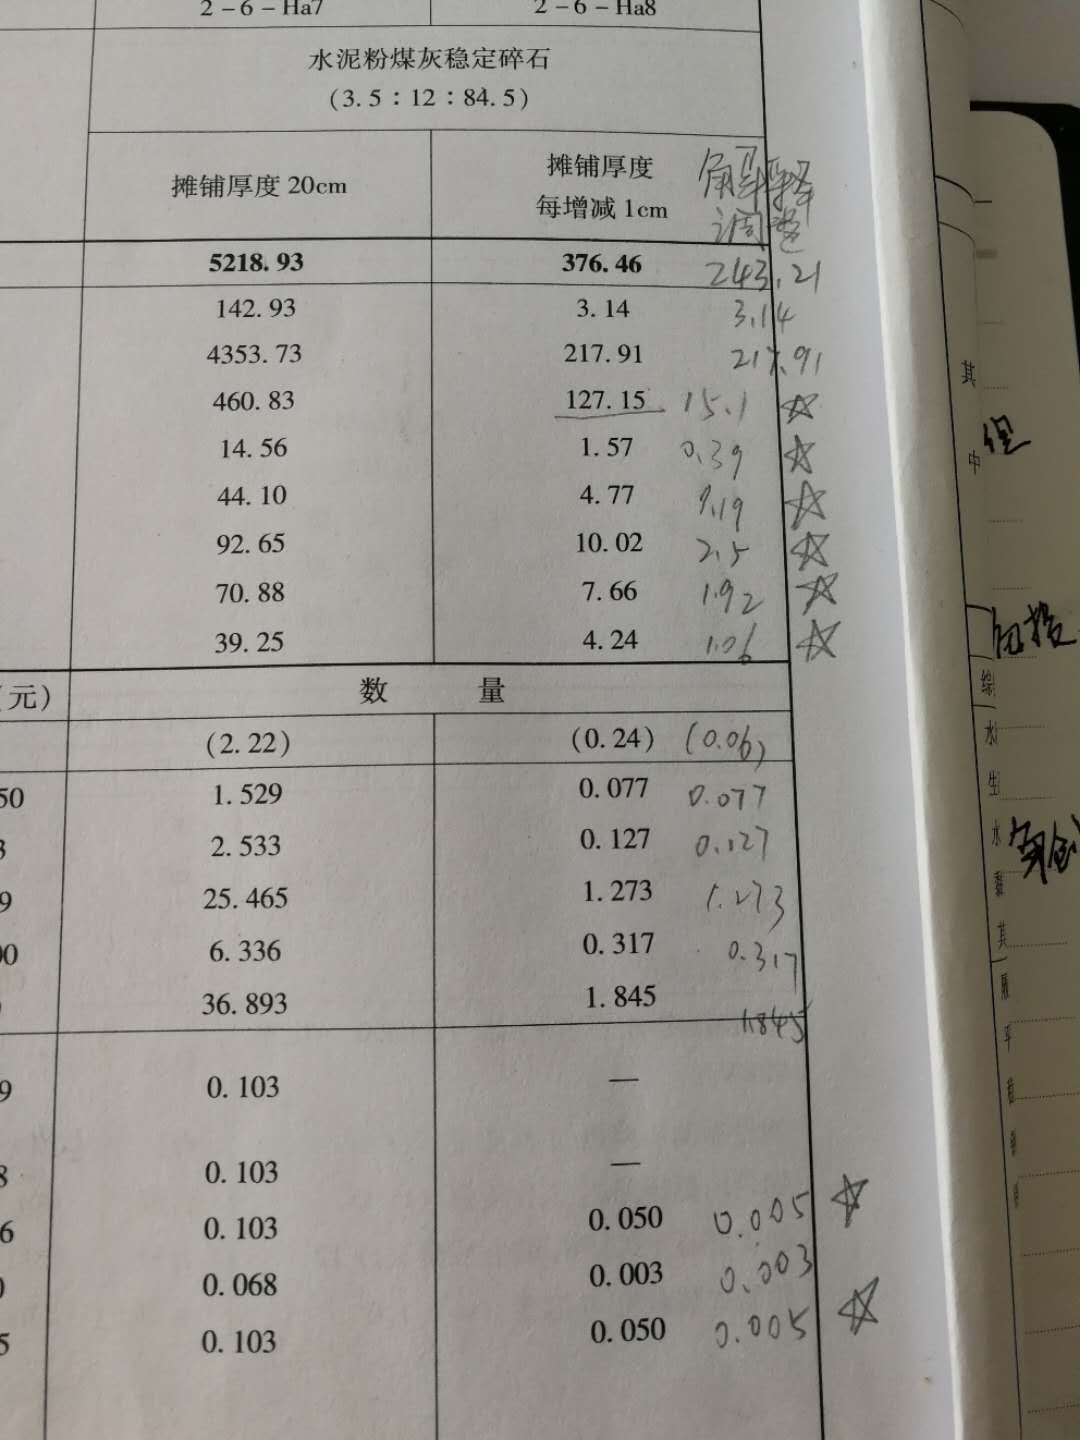 2-6-Ha7 2-6-Ha8
水泥粉煤灰稳定碎石
(3.5:12:84.5)
摊铺厚度20cm
摊铺厚度
每增减1cm
解释
调整
5218.93 376.46 243.21
142.93 3.14 3.14
4353.73 217.91 217.91
460.83 127.15 15.1 ☆
14.56 1.57 0.39 ☆
44.10 4.77 1.19 ☆
92.65 10.02 2.5 ☆
70.88 7.66 1.92 ☆
39.25 4.24 1.06 ☆
(元) 数 量
(2.22) (0.24) (0.06)
50 1.529 0.077 0.077
3 2.533 0.127 0.127
9 25.465 1.273 1.273
00 6.336 0.317 0.317
36.893 1.845 1.845
9 0.103 —
8 0.103 —
6 0.103 0.050 0.005 ☆
0 0.068 0.003 0.003
5 0.103 0.050 0.005 ☆
其
中
包括
综
水
生
水
其
平